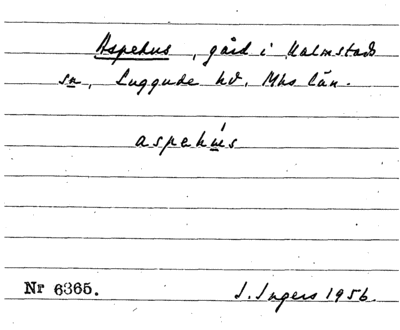 Aspehus, gård i Kalmstads
sn, Luggude hd, Mhs län.
aspehús
Nr 6365.
I. Ingers 1956.